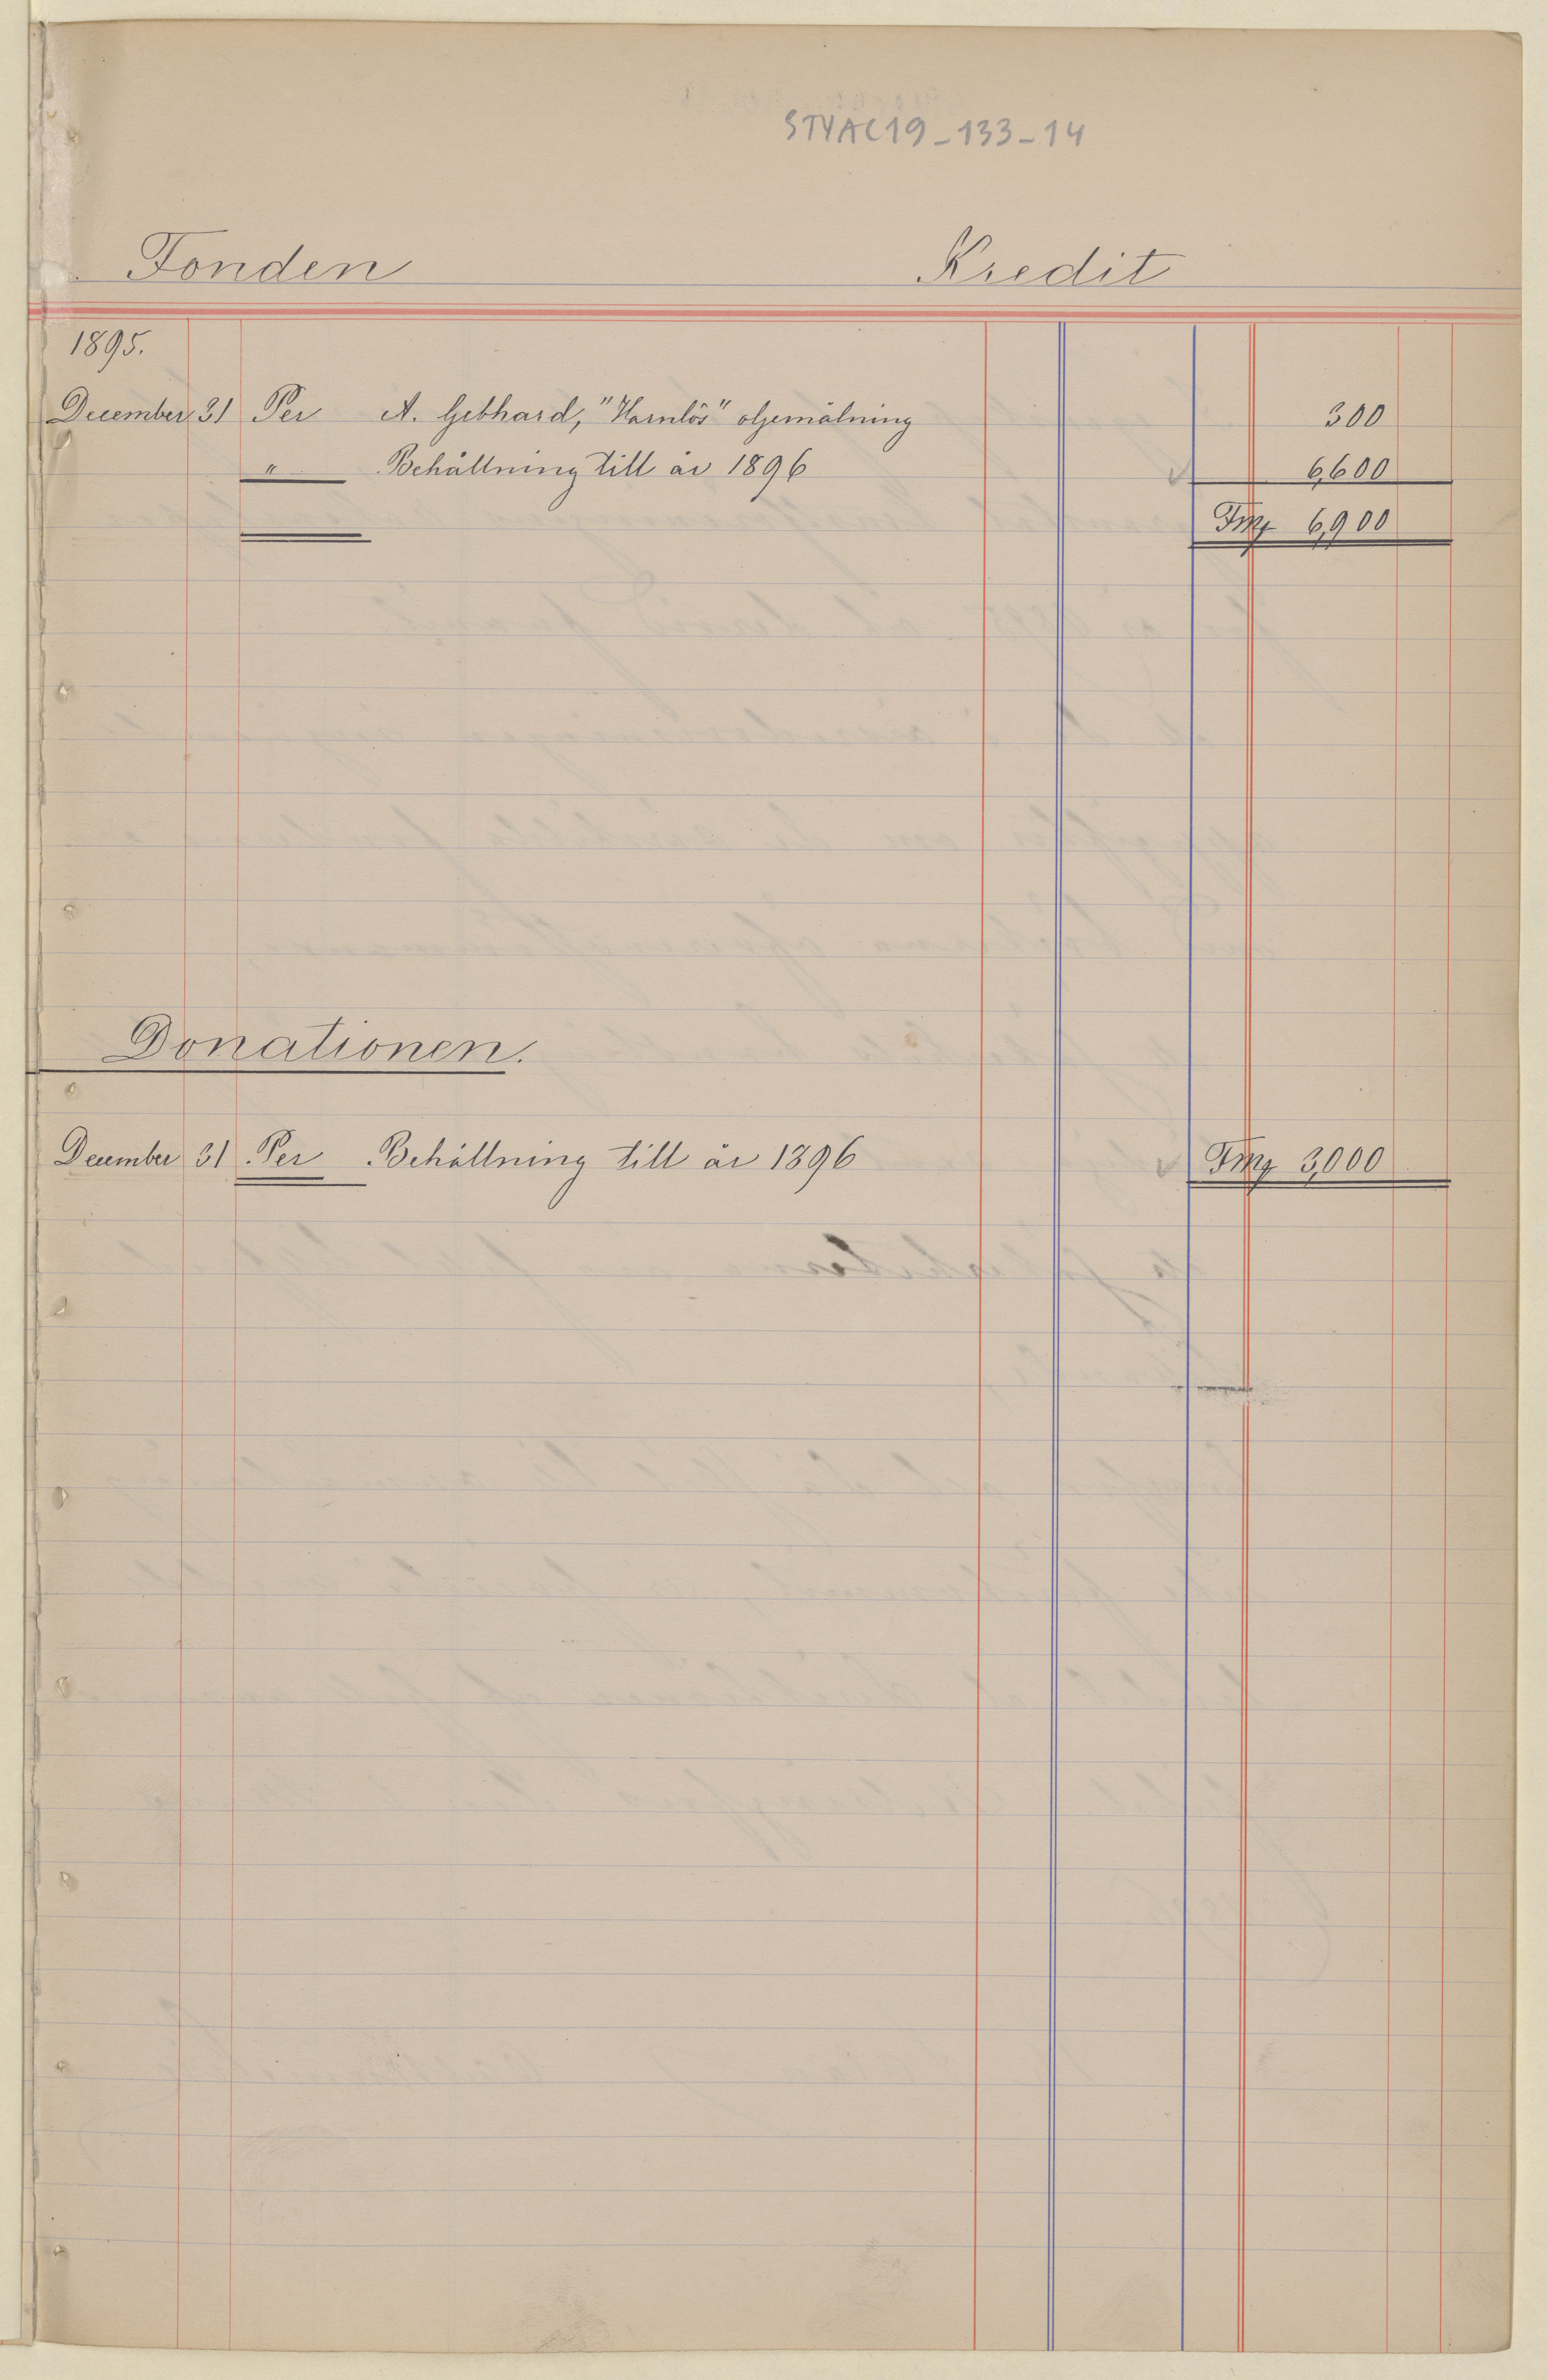 STYAC19-133-14
Fonden Kredit
1895.
December 31 Per A. Gebhard, "Hamlös" oljemålning 300
" Behållning till år 1896 6,600
Fmk 6,900
Donationen.
December 31 Per Behållning till år 1896 Fmk 3,000